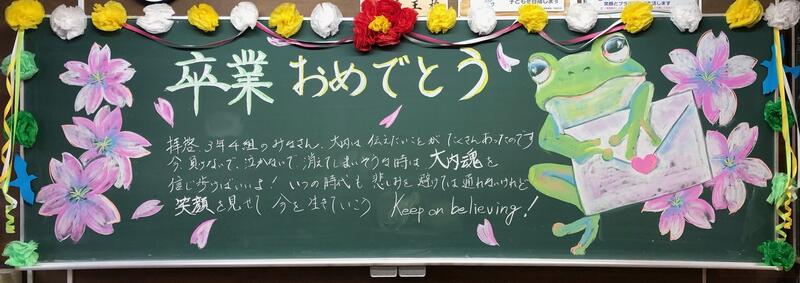 子どもを育成します
笑顔とプラ
卒業おめでとう
拝啓 3年4組のみなさん、大内は伝えたいことが たくさんあったのです
今、負けないで、泣かないで、消えてしまいそうな時は 大内魂を
信じ歩けばいいよ! いつの時代も 悲しみを 避けては通れないけれど
笑顔を見せて 今を生きていこう Keep on believing!